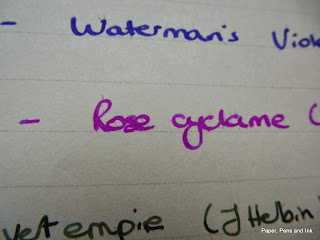 - Waterman's Viol
- Rose cyclame (
vert empire (J Herbin
Paper, Pens and Ink